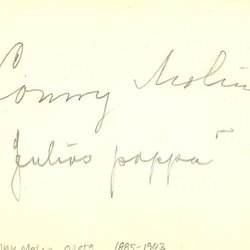 Conny Molin
Julius pappa"
Conny Molin opera 1885-1943